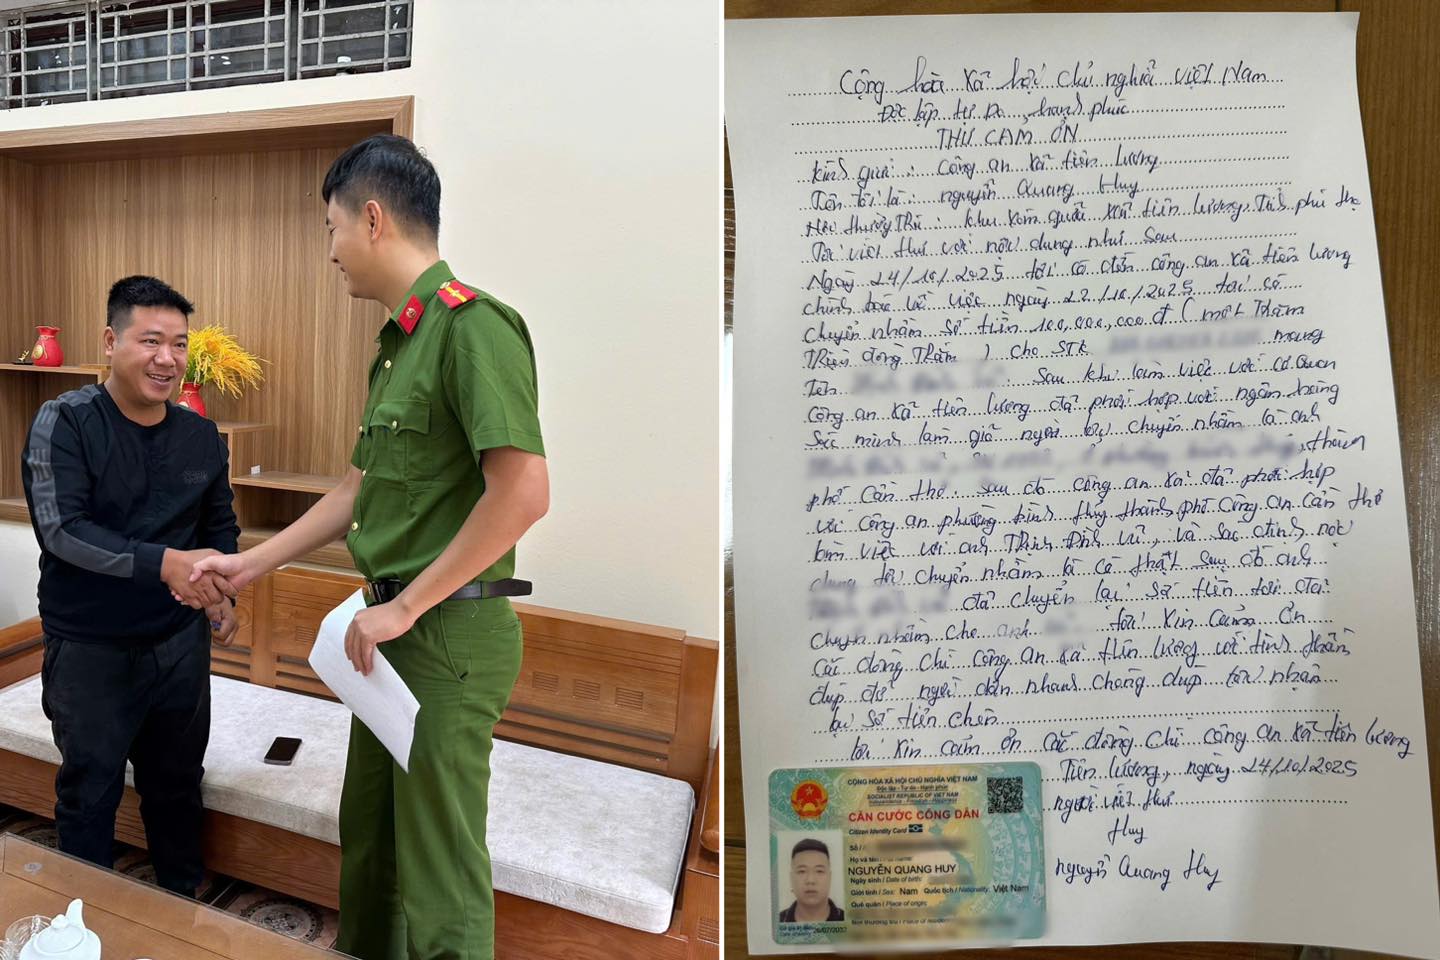 Cộng hòa xã hội chủ nghĩa việt Nam
Độc lập tự Do, hạnh phúc
THƯ CẢM ƠN
Kính gửi: Công an xã tiên Lương
Tên tôi là: nguyễn Quang Huy
Nơi thường trú: khu xóm quởi xã tiên Lương, Tỉnh phú thọ
Tôi viết thư với nội dung như sau
Ngày 24/10/2025 tôi có đến công an xã tiên Lương
trình báo về việc ngày 22/10/2025 tôi có
chuyển nhầm số tiền 100,000,000đ (một trăm
triệu đồng chẵn) cho STK mang
Tên Sau khi làm việc với cơ Quan
Công an xã tiên Lương đã phối hợp với ngân hàng
xác minh làm rõ người tôi chuyển nhầm là anh
thành
phố Cần thơ. Sau đó công an xã đã phối hợp
với công an phường bình thủy thành phố Công an Cần thơ
làm việc với anh Vũ, và xác định nội
dung tôi chuyển nhầm là có thật sau đó anh
đã chuyển lại số tiền tôi đã
chuyển nhầm cho anh tôi xin cảm ơn
các đồng chí công an xã tiên Lương với tinh thần
giúp đỡ người dân nhanh chóng giúp tôi nhận
lại số tiền trên
tôi xin cảm ơn các đồng chí công an xã tiên Lương
Tiên Lương, ngày 24/10/2025
người viết thư
Huy
nguyễn Quang Huy
CỘNG HÒA XÃ HỘI CHỦ NGHĨA VIỆT NAM
Độc lập - Tự do - Hạnh phúc
SOCIALIST REPUBLIC OF VIET NAM
Independence - Freedom - Happiness
CĂN CƯỚC CÔNG DÂN
Citizen Identity Card
Số /
Họ và tên / Full name:
NGUYỄN QUANG HUY
Ngày sinh / Date of birth:
Giới tính / Sex: Nam Quốc tịch / Nationality: Việt Nam
Quê quán / Place of origin:
Nơi thường trú / Place of residence: